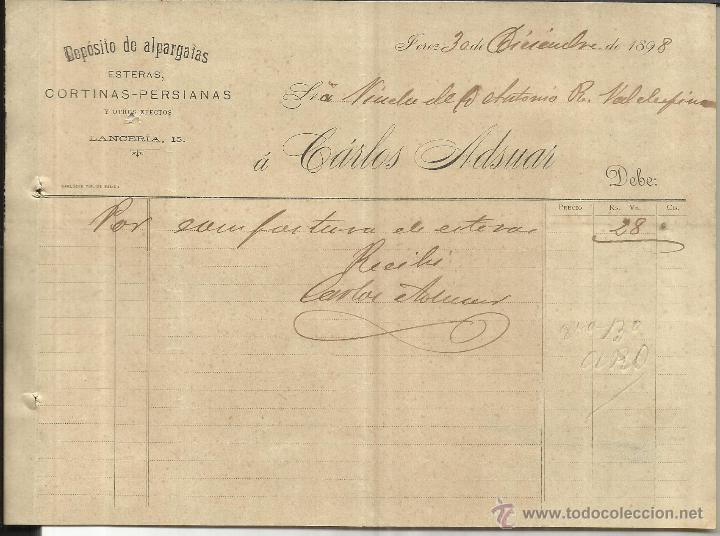 Depósito de alpargatas
ESTERAS,
CORTINAS-PERSIANAS
Y OTROS EFECTOS
LANCERÍA, 15.
Jerez 30 de Diciembre de 1898
Sra Viuda de D Antonio R. Valdespino
á Cárlos Adsuar
Debe:
PRECIO Rs. Vn. Cts.
Por compostura de esteras 28
Recibí
Carlos Adsuar
www.todocoleccion.net